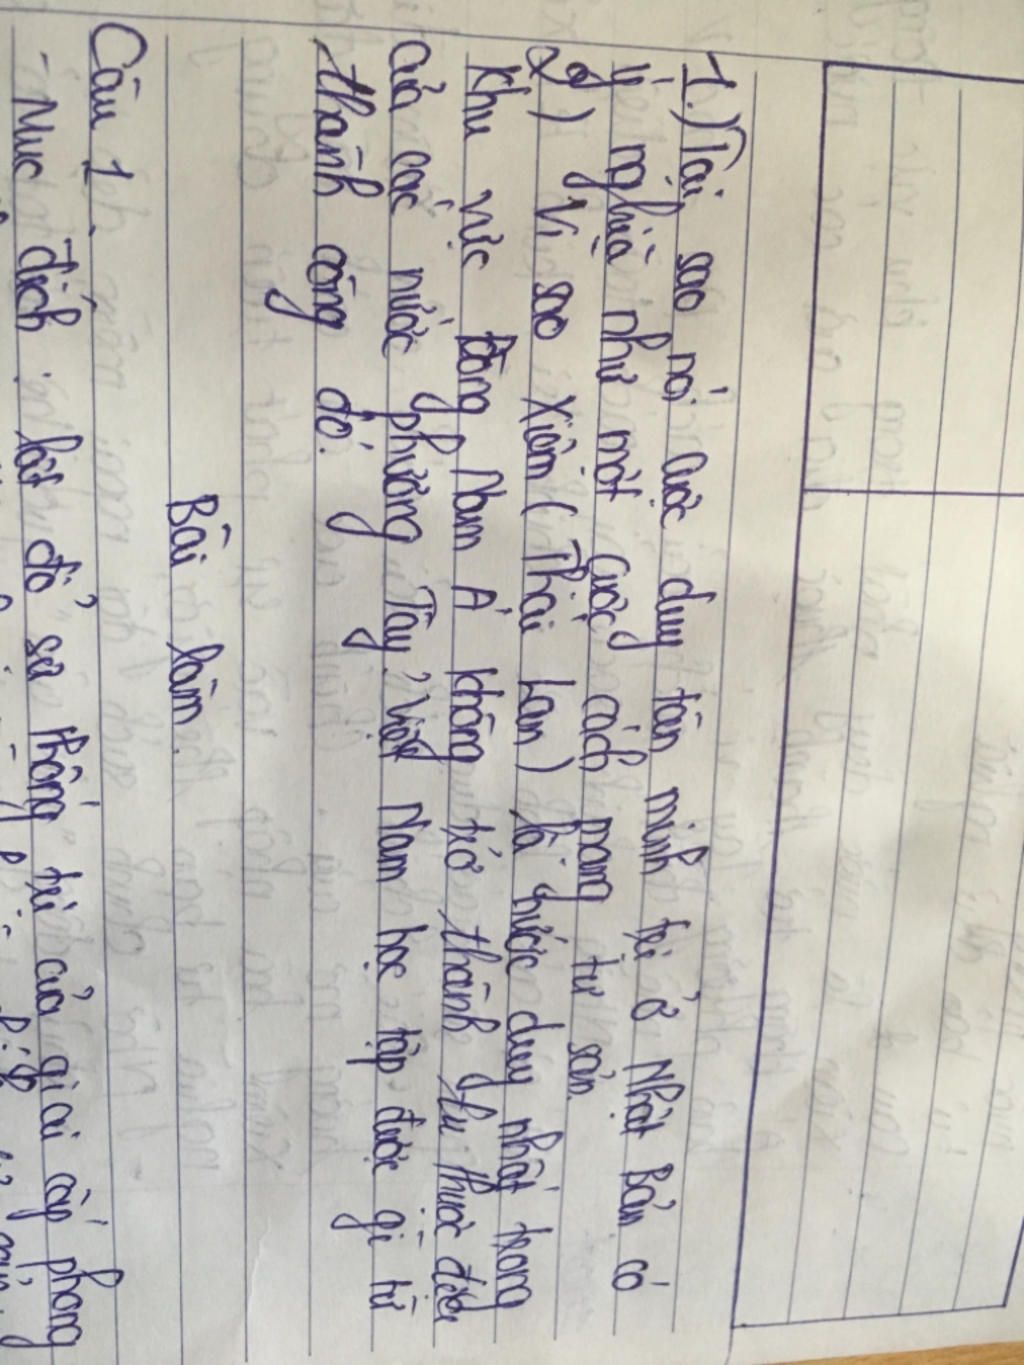 1.) Tại sao nói cuộc duy tân minh trị ở Nhật Bản có
ý nghĩa như một cuộc cách mạng tư sản.
2) Vì sao Xiêm (Thái Lan) là nước duy nhất trong
khu vực Đông Nam Á không trở thành thuộc địa
của các nước phương Tây? Việt Nam học tập được gì từ
thành công đó.
Bài làm
Câu 1
- Mục đích lật đổ sự thống trị của giai cấp phong